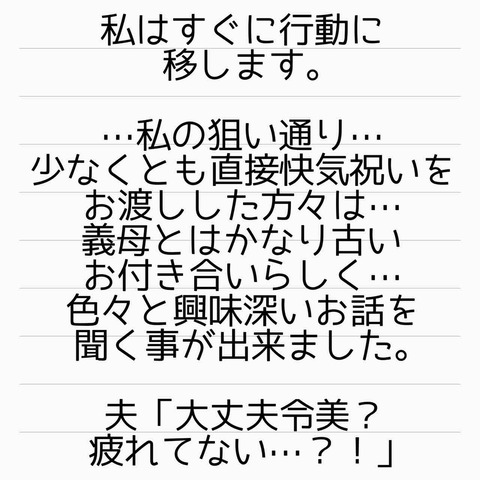 私はすぐに行動に
移します。
…私の狙い通り…
少なくとも直接快気祝いを
お渡しした方々は…
義母とはかなり古い
お付き合いらしく…
色々と興味深いお話を
聞く事が出来ました。
夫「大丈夫令美？
疲れてない…？！」